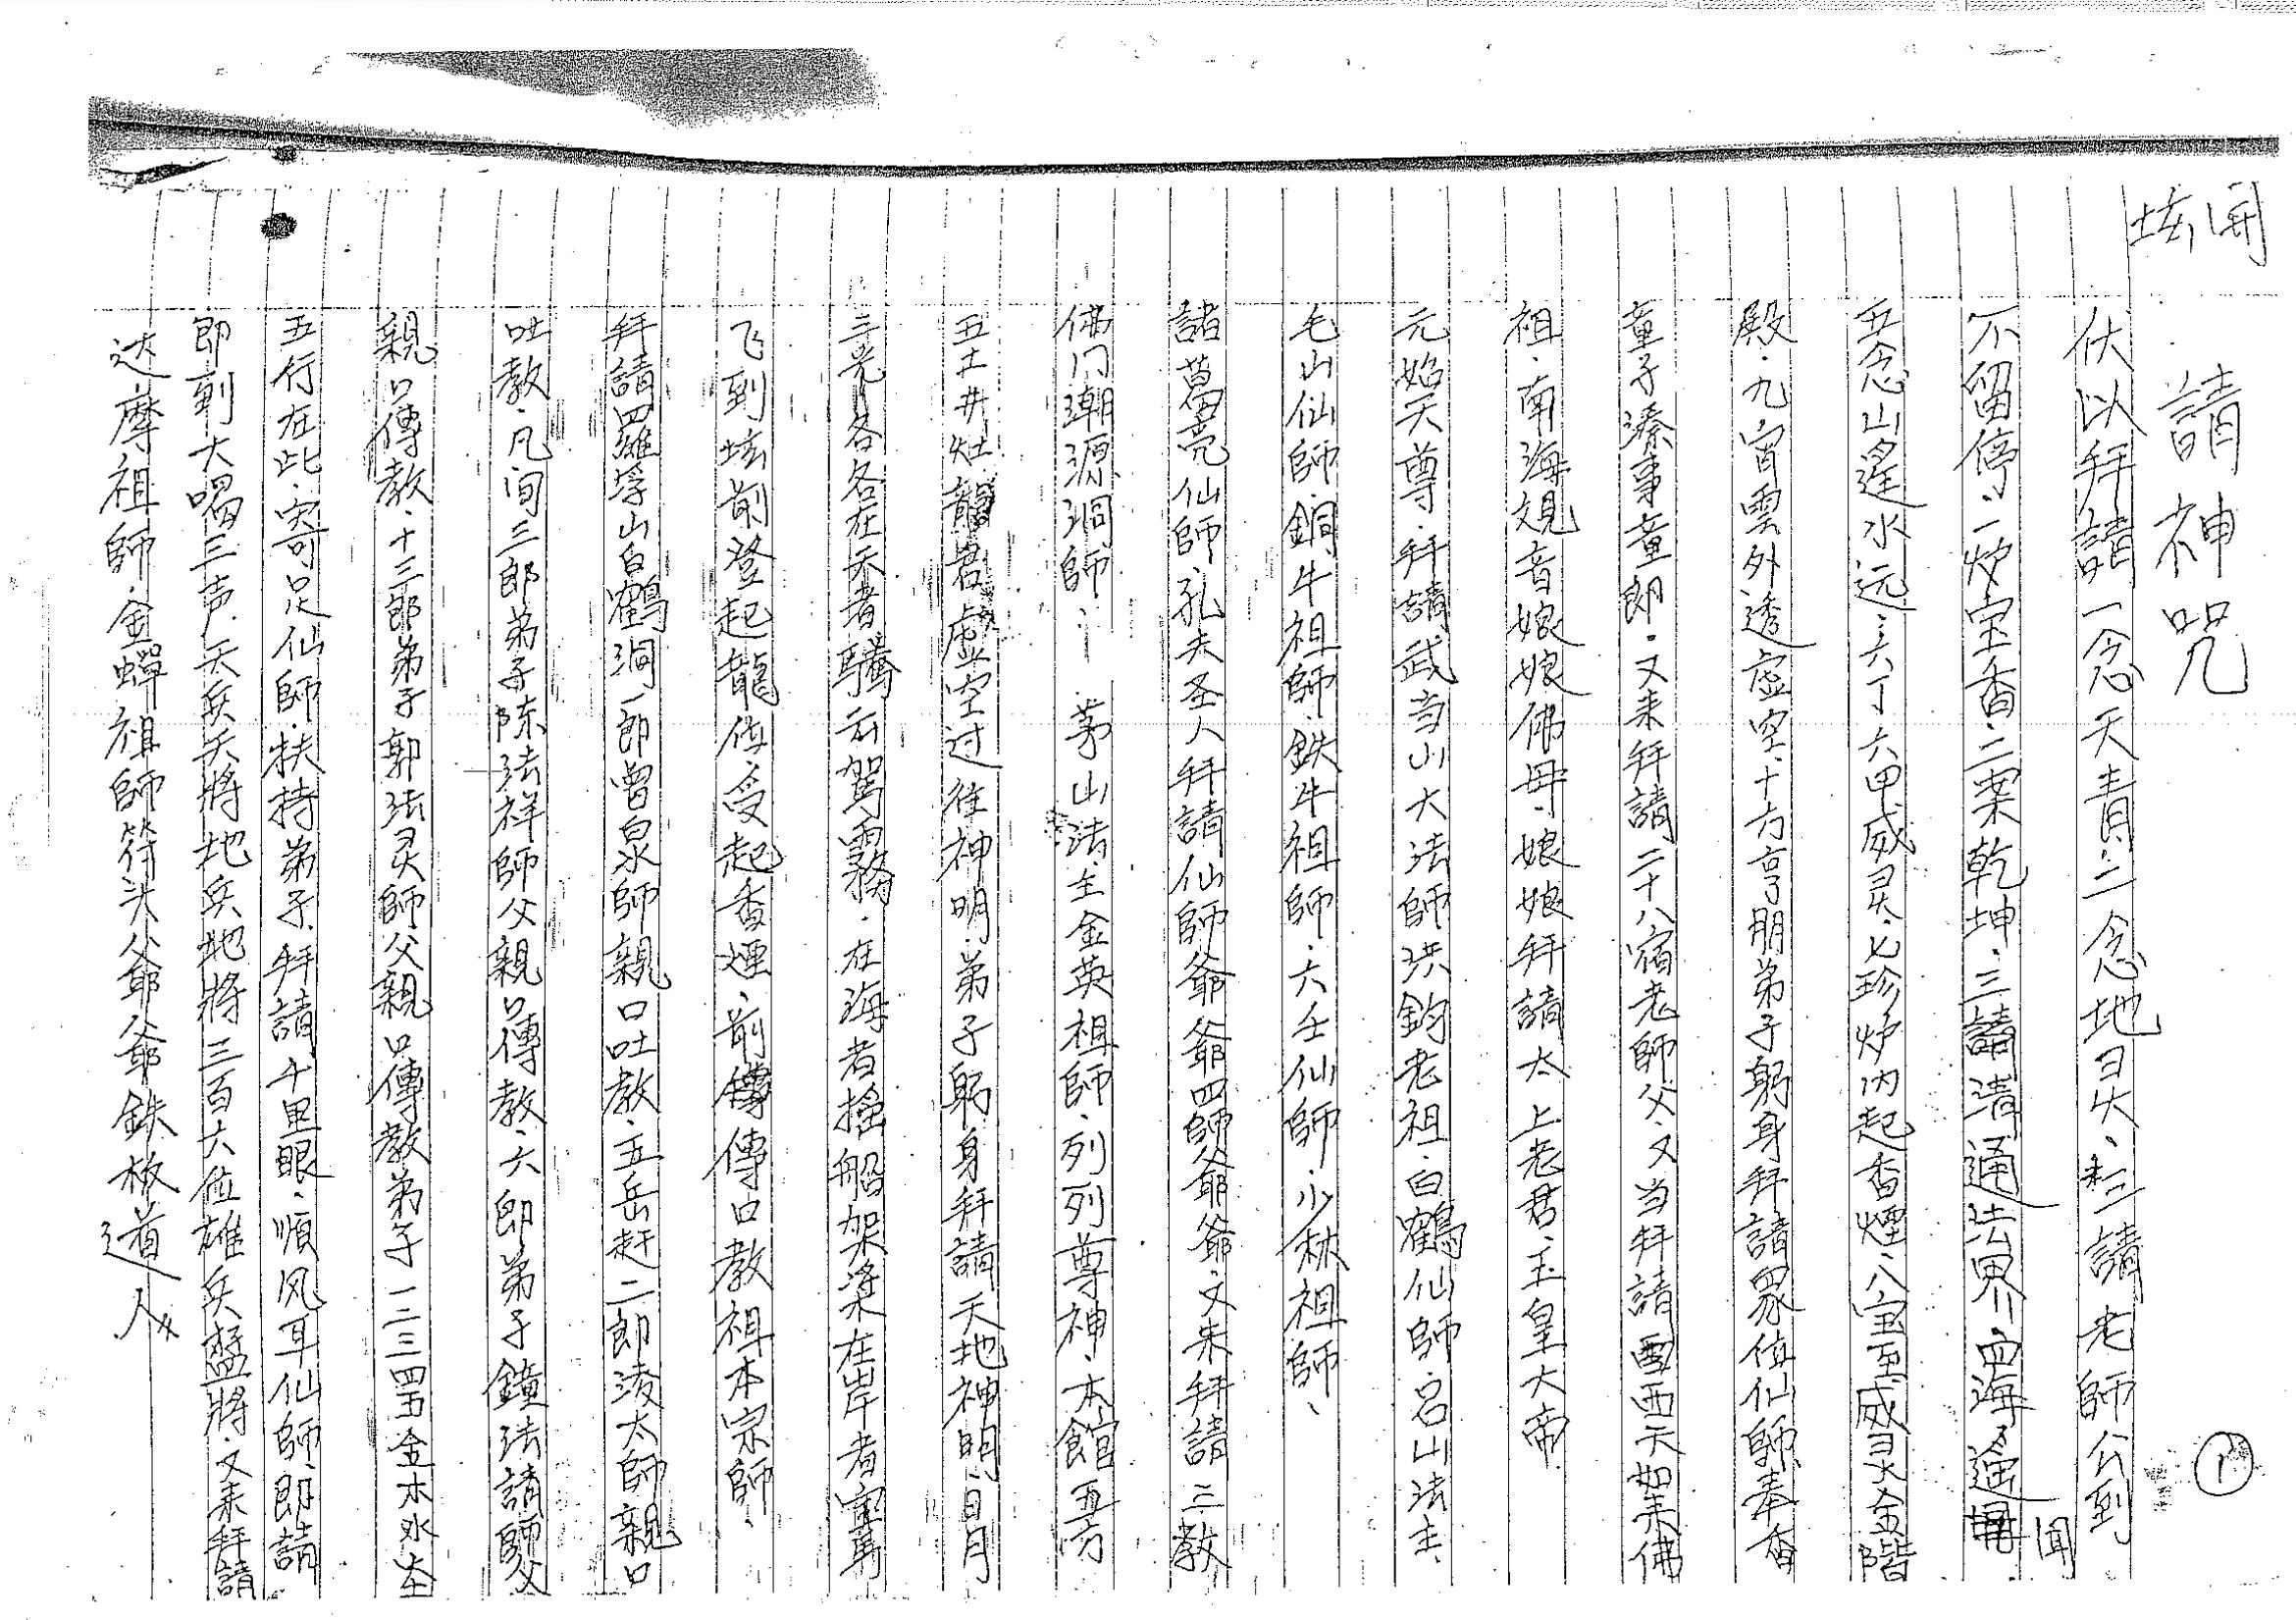 開坛
請神咒
①
伏以拜請一念天責二念地灵、三請老師公到
不留停、一炉宝香、二案乾坤、三請清通法界、四海通聞
五念山遥水远、六丁六甲威灵、七珍炉内起香煙、八宝至威灵金階
殿、九宵雲外透虚空、十方亨朋弟子躬身拜請眾位仙師奉香
童子溱事童郎、又来拜請二十八宿老師父、又当拜請西天如来佛
祖、南海观音娘娘佛母娘娘拜請太上老君、玉皇大帝
元始天尊、拜請武当山大法師洪鈞老祖、白鶴仙師、呂山法主、
毛山仙師、銅牛祖師、鉄牛祖師、六壬仙師、少林祖師、
諸葛亮仙師、孔夫圣人拜請仙師爺爺四師父爺爺、又来拜請三教
佛门潮源洞師、茅山法主金英祖師、列列尊神、本館五方
五土井灶龍君虚空过往神明、弟子躬身拜請天地神明、日月
三光各各在天者騰云驾霧、在海者撑船架桨在岸者
飞到坛前登起龍位、受起香煙、前傳口教祖本宗師、
拜請羅浮山白鶴洞一郎曾泉師親口吐教、五岳赶二郎凌太師親口
吐教、凡间三郎弟子陈法祥師父親口傳教、六郎弟子鐘法請師父
親口傳教、十三郎弟子郭法灵師父親口傳教弟子一二三四五金木水
五行在此、寄足仙師、扶持弟子、拜請千里眼、順风耳仙師、即請
即到大喝三声、天兵天將地兵地將三百六位雄兵猛將、又来拜請
达摩祖師、金蟬祖師符头父爺爺鉄板道人